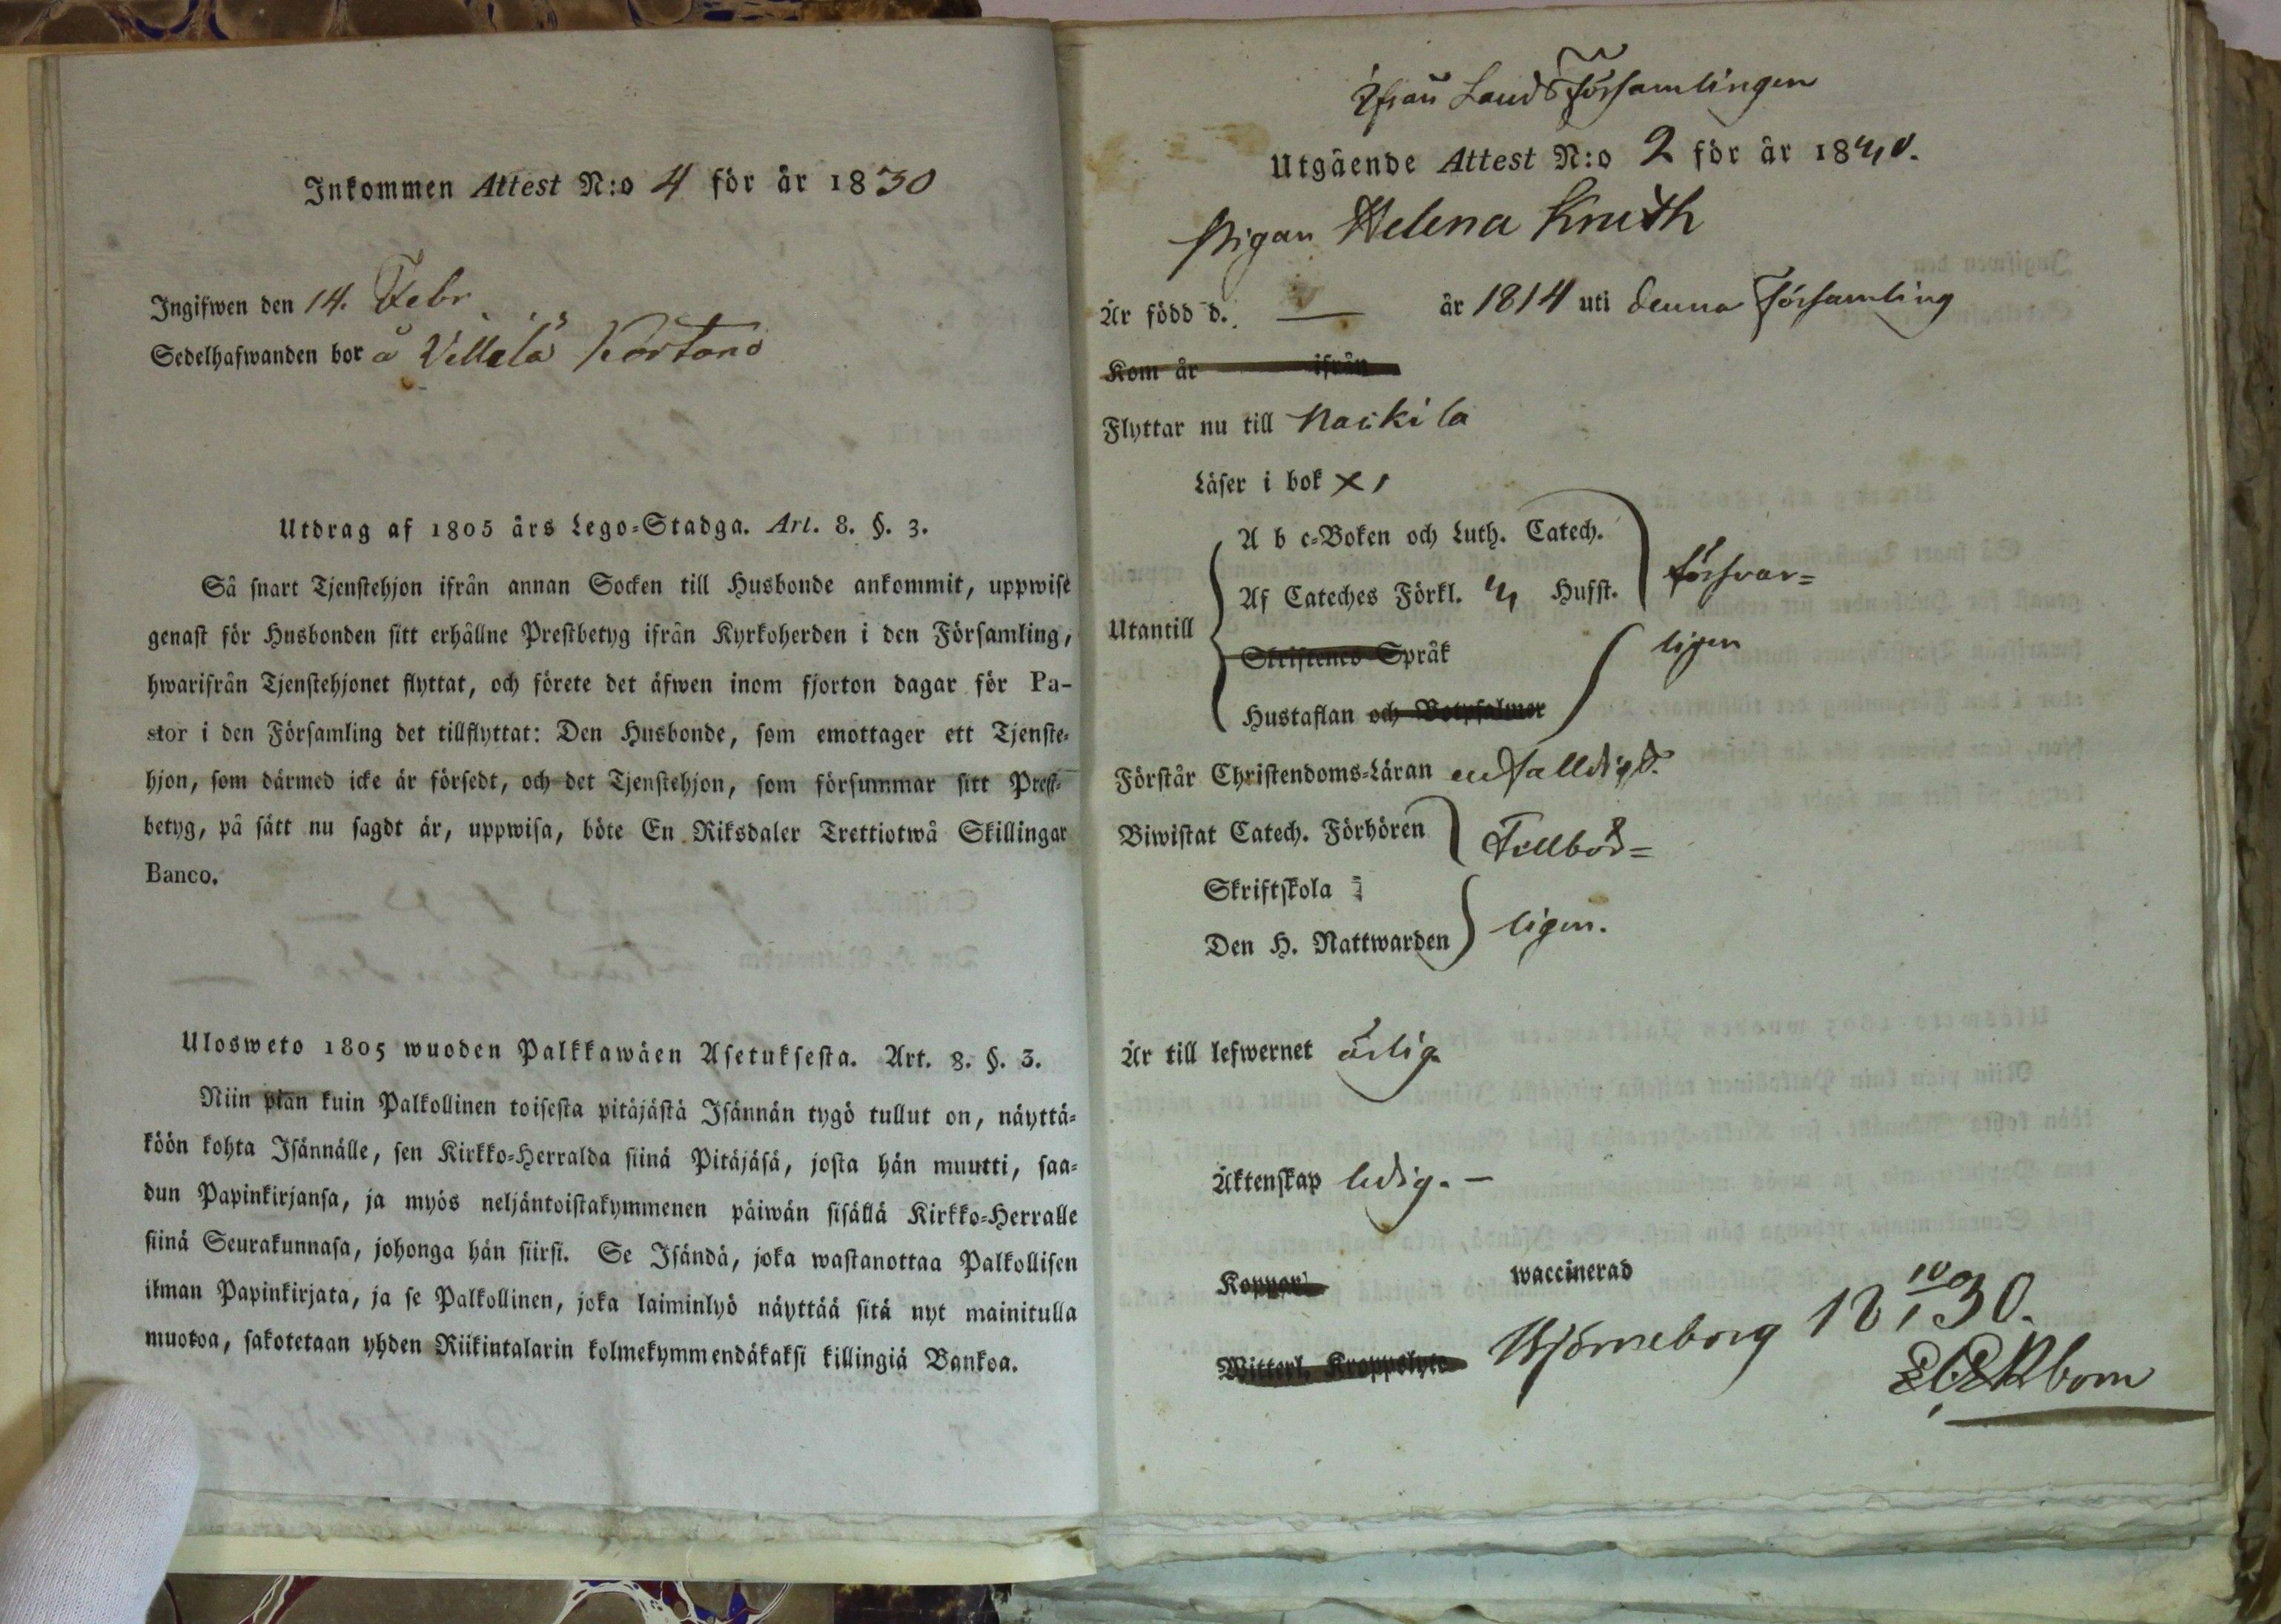 Inkommen Attest N:o 4 för år 1830
Ingifwen den 14. Febr.
Sedelhafwanden bor å Villilä Kortano
Utdrag af 1805 års Lego-Stadga. Art. 8. §. 3.
Så snart Tjenstehjon ifrån annan Socken till Husbonde ankommit, uppwise
genast för Husbonden sitt erhållne Prestbetyg ifrån Kyrkoherden i den Församling,
hwarifrån Tjenstehjonet flyttat, och förete det äfwen inom fjorton dagar för Pa-
stor i den Församling det tillflyttat: Den Husbonde, som emottager ett Tjenste-
hjon, som därmed icke är försedt, och det Tjenstehjon, som försummar sitt Prest-
betyg, på sätt nu sagdt är, uppwisa, böte En Riksdaler Trettiotwå Skillingar
Banco.
Ulosweto 1805 wuoden Palkkawäen Asetuksesta. Art. 8. §. 3.
Niin pian kuin Palkollinen toisesta pitäjästä Isännän tygö tullut on, näyttä-
köön kohta Isännälle, sen Kirkko-Herralda siinä Pitäjäsä, josta hän muutti, saa-
dun Papinkirjansa, ja myös neljäntoistakymmenen päiwän sisällä Kirkko-Herralle
siinä Seurakunnasa, johonga hän siirsi. Se Isändä, joka wastanottaa Palkollisen
ilman Papinkirjata, ja se Palkollinen, joka laiminlyö näyttää sitä nyt mainitulla
muotoa, sakotetaan yhden Riikintalarin kolmekymmendäkaksi killingiä Bankoa.
Ifrån Lands Församlingen
Utgående Attest N:o 2 för år 18
Pigan Helena Kruth
Är född d. — år 1814 uti denna Församling
Kom år ifrån
Flyttar nu till Nackila
Läser i bok x,
A b c-Boken och Luth. Catech.
Af Cateches Förkl. Husst. försvar=
Utantill
Skriftenes Språk ligen
Hustaflan och Botpsalmer
Förstår Christendoms-Läran enfalldigt.
Biwistat Catech. Förhören Tillbör=
Skriftskola
Den H. Nattwarden ligen.
Är till lefwernet ärlig
Äktenskap ledig. —
Koppor waccinerad
Witterl. Kroppslyte Björneborg 18 10/1 30.